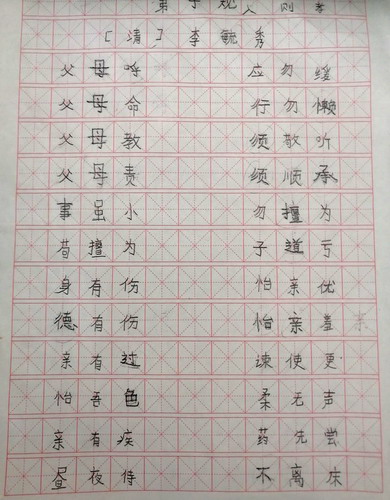 弟子规 入则孝
[清] 李毓秀
父母呼 应勿缓
父母命 行勿懒
父母教 须敬听
父母责 须顺承
事虽小 勿擅为
苟擅为 子道亏
身有伤 怡亲优
德有伤 怡亲羞
亲有过 谏使更
怡吾色 柔无声
亲有疾 药先尝
昼夜侍 不离床